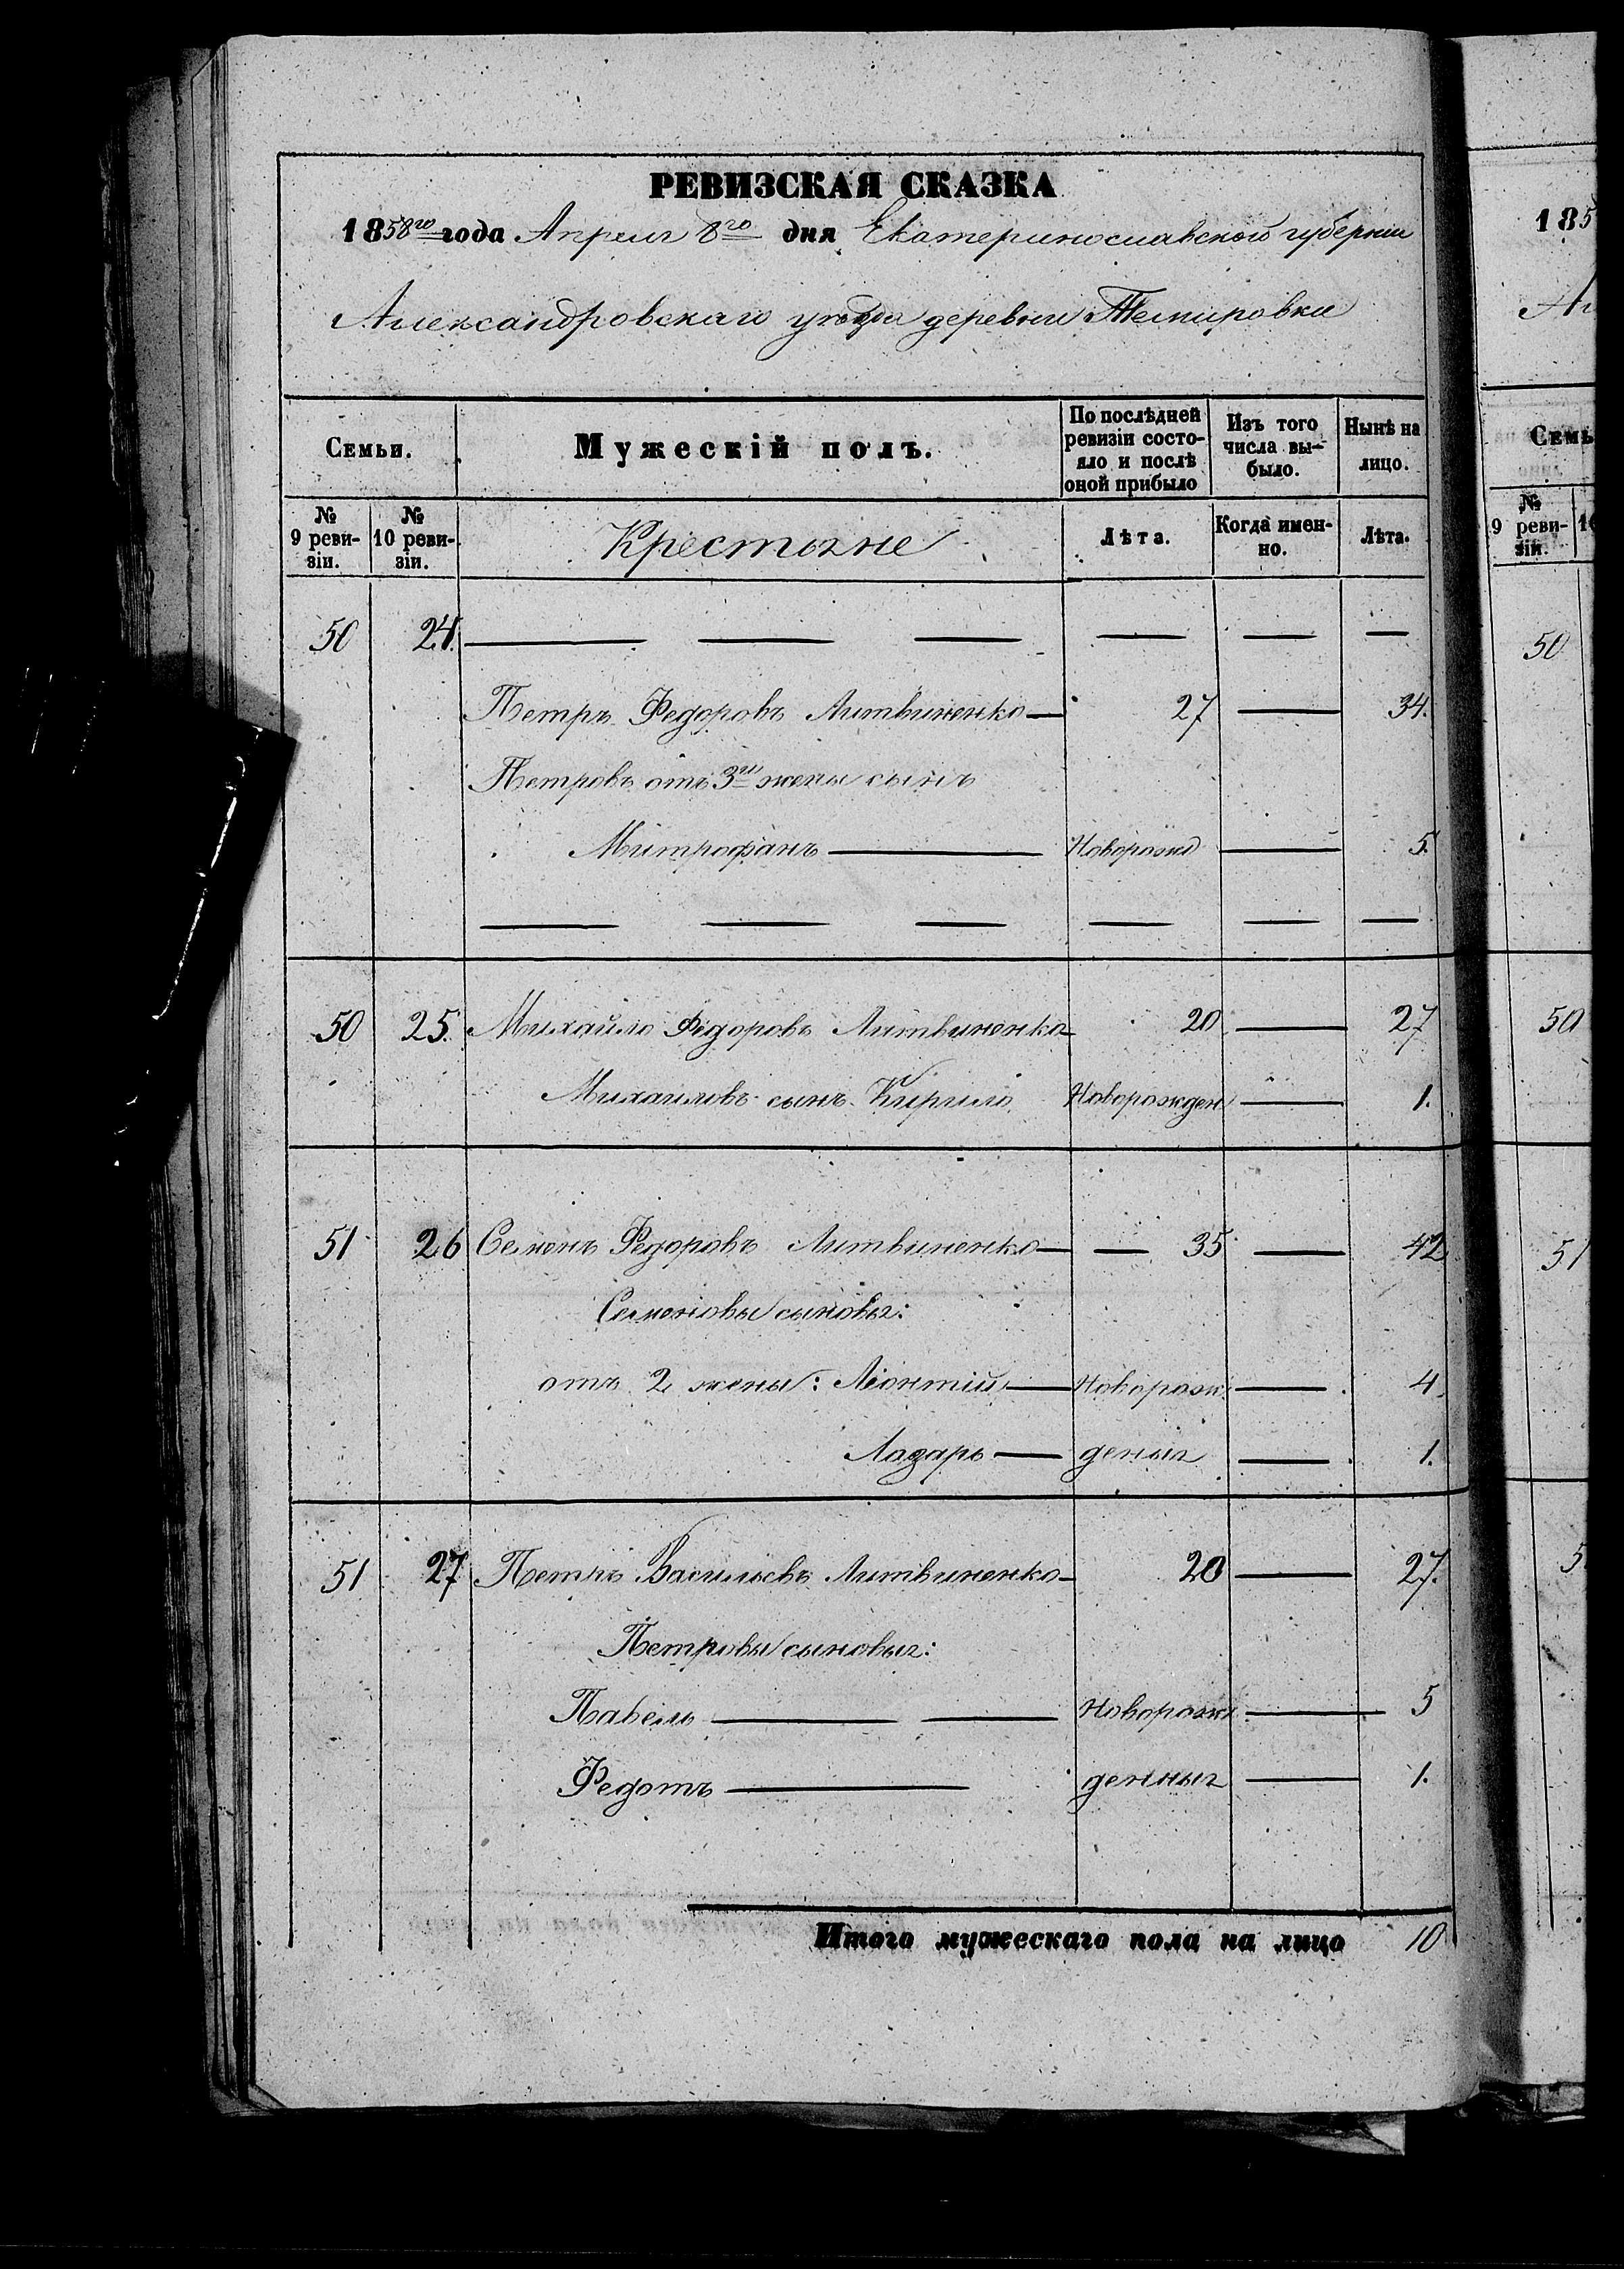 РЕВИЗСКАЯ СКАЗКА
1858го года Апреля 8го дня Екатеринославской губернии
Александровскаго уѣзда деревни Темировки
Семьи.
Мужескій полъ.
По послѣдней ревизіи состояло и послѣ оной прибыло
Изъ того числа выбыло.
Нынѣ на лицо.
№ 9 ревизіи.
№ 10 ревизіи.
Крестьяне
Лѣта.
Когда именно.
Лѣта.
50 24.
Петръ Федоровъ Литвиненко 27 34.
Петровъ отъ 3й жены сынъ
Митрофанъ Новорожд 5.
50 25. Михайло Федоровъ Литвиненко 20 27
Михаиловъ сынъ Кирило Новорожден 1.
51 26 Семенъ Федоровъ Литвиненко 35 42
Семеновы сыновья:
отъ 2 жены: Леонтій Новорож 4.
Лазарь деныя 1.
51 27 Петръ Васильевъ Литвиненко 20 27.
Петровы сыновья:
Павелъ Новорож 5
Федотъ денныя 1.
Итого мужескаго пола на лицо 10
185
Семь
№ 9 ревизіи.
50
50
51
5